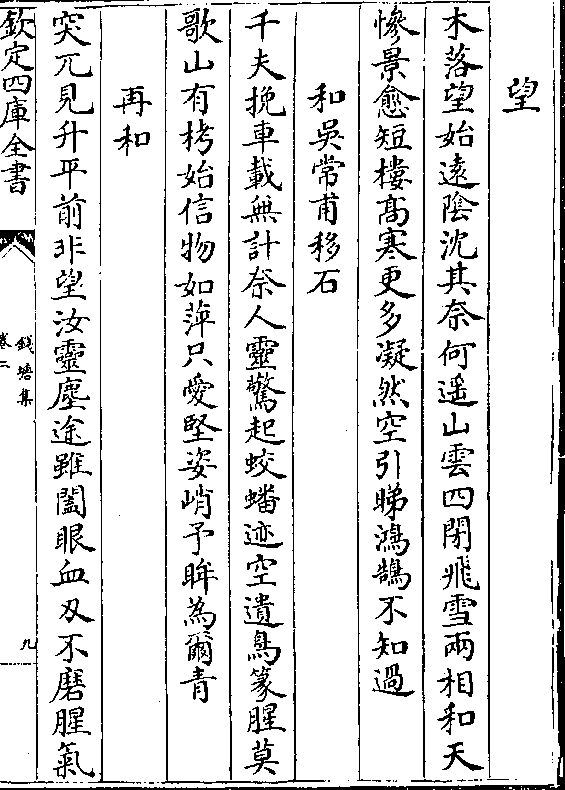 望
木落望始遠陰沈其奈何遥山雲四閉飛雪兩相和天
慘景愈短樓高寒更多凝然空引睇鴻鵠不知過
和吳常甫移石
千夫挽車載無計祭人靈驚起蛟蟠迹空遺鳥篆腥莫
歌山有栲始信物如萍只愛堅姿峭予眸為爾青
再和
突兀見升平前非望汝靈塵途雖闔眼血刄不磨腥氣
欽定四庫全書
錢塘集
卷二
九